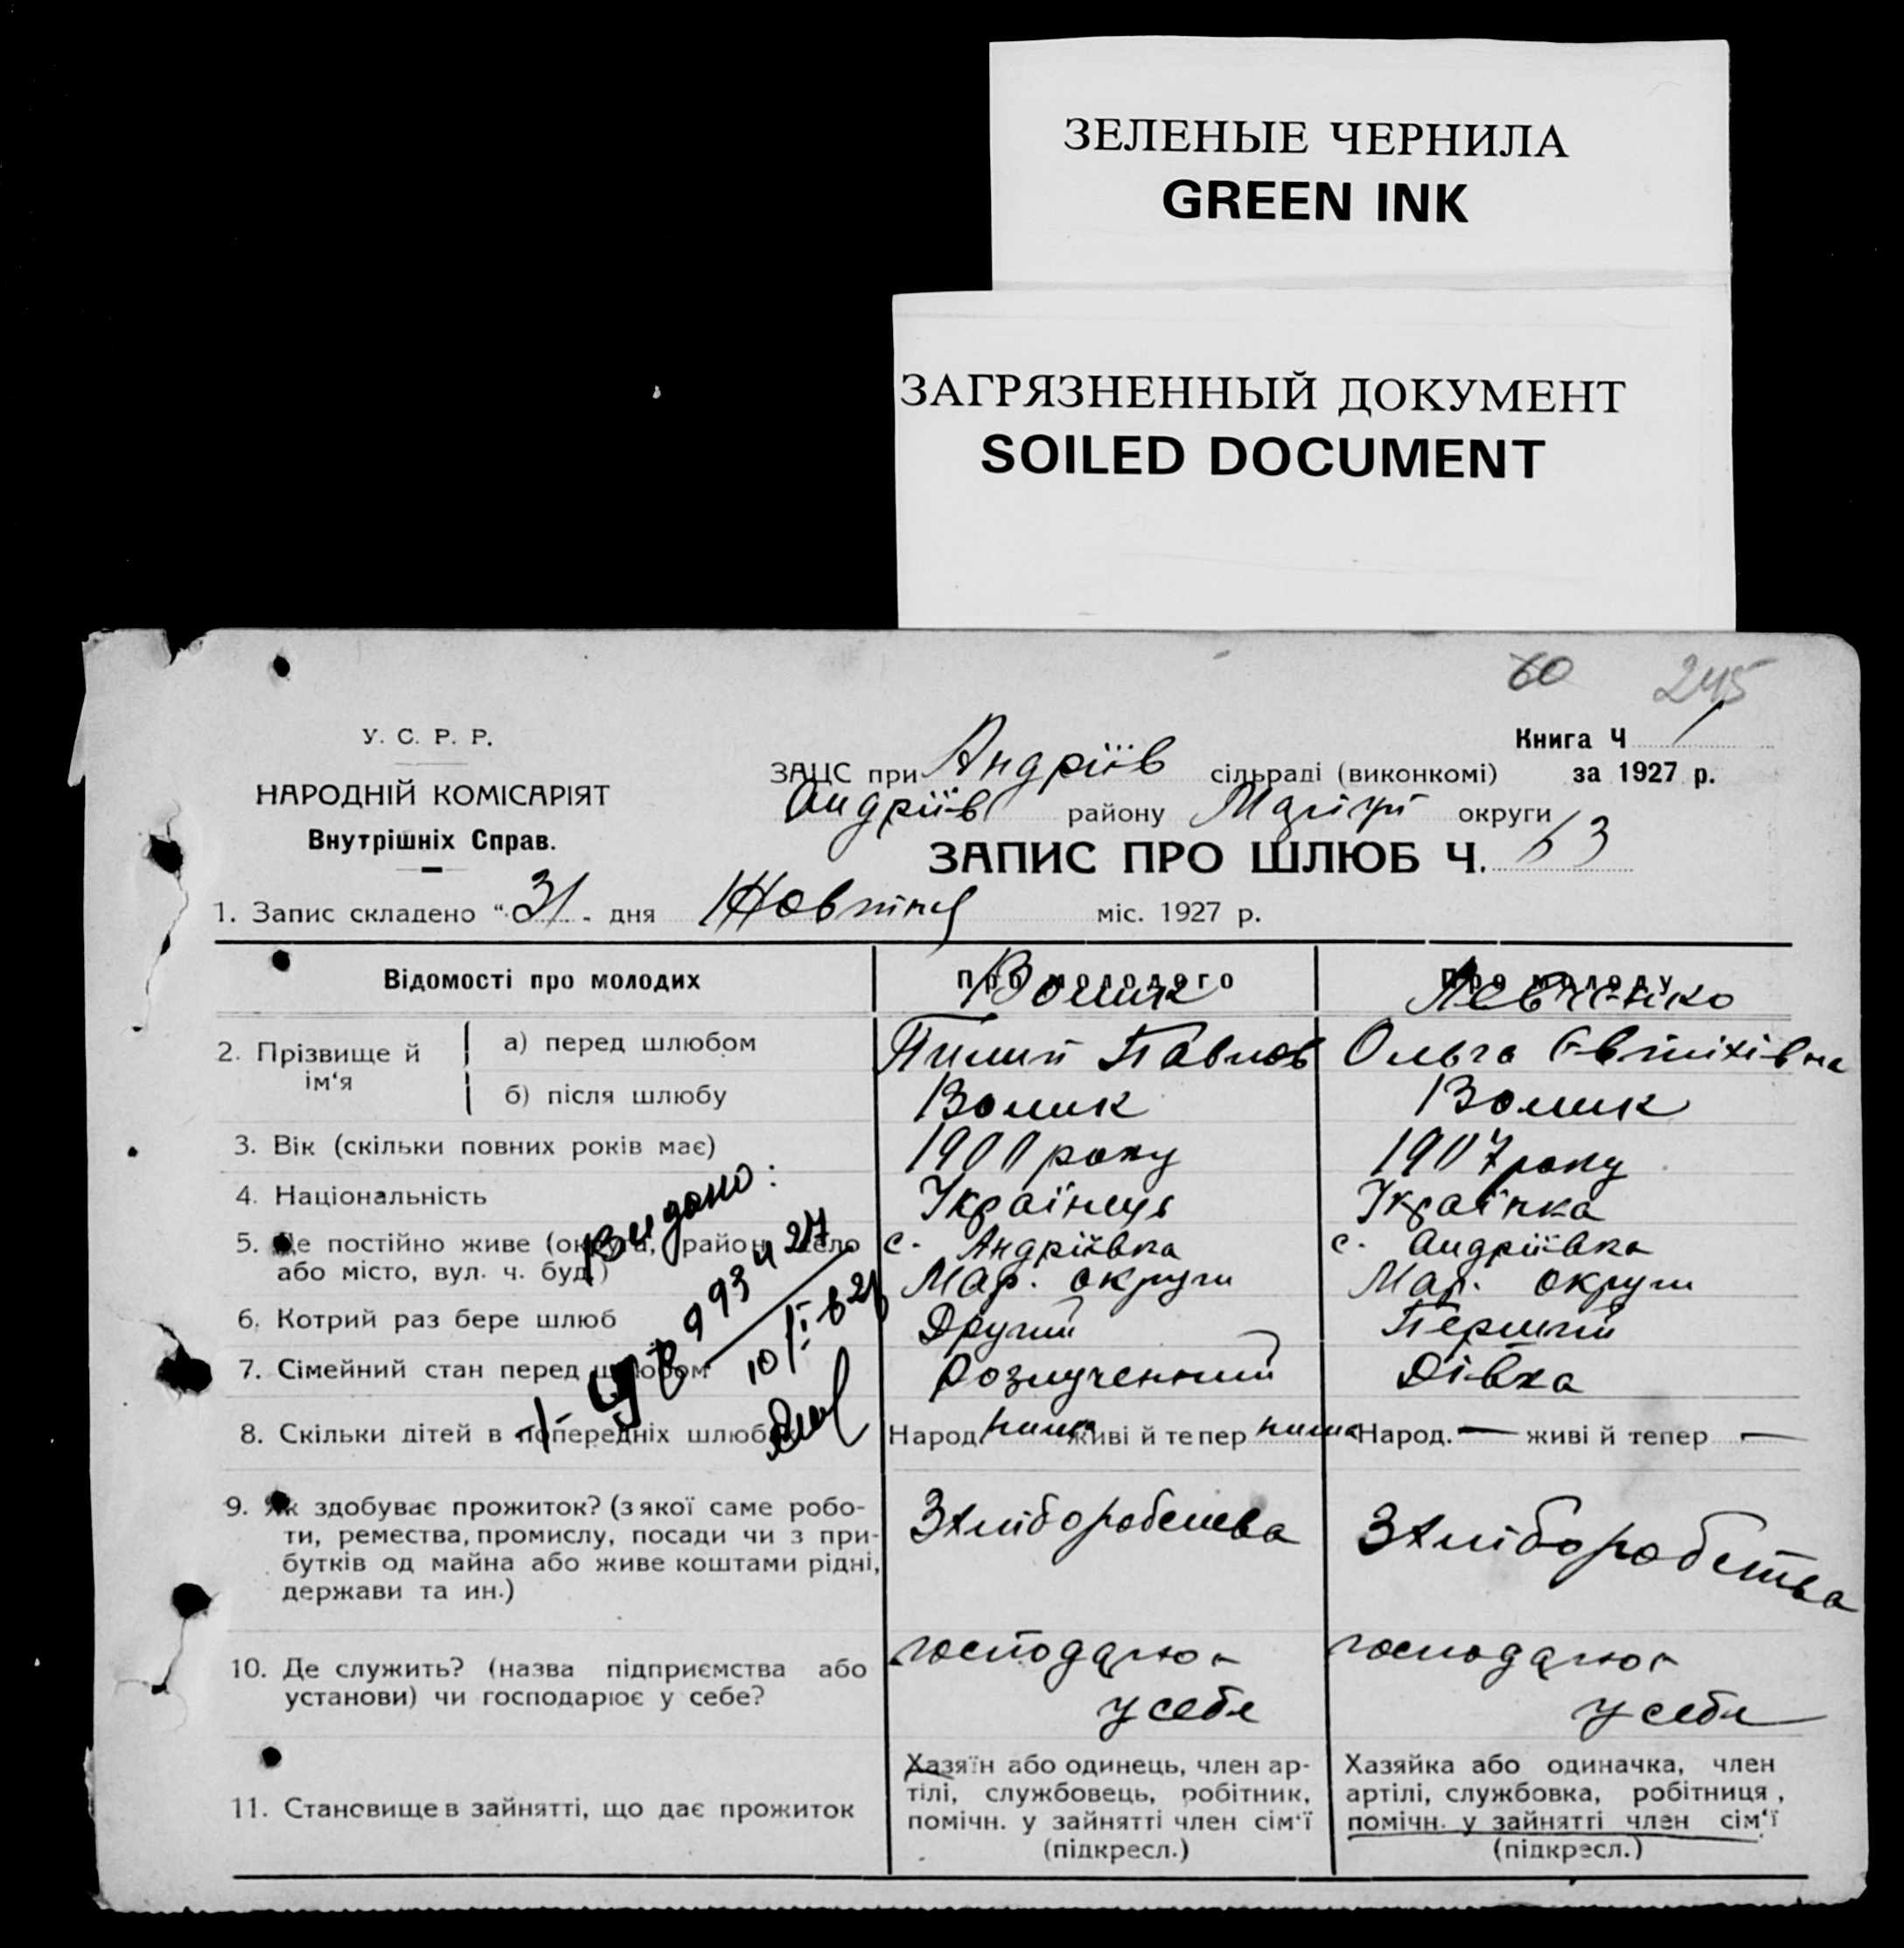 ЗЕЛЕНЫЕ ЧЕРНИЛА
GREEN INK
ЗАГРЯЗНЕННЫЙ ДОКУМЕНТ
SOILED DOCUMENT
60 245
У. С. Р. Р.
НАРОДНІЙ КОМІСАРІЯТ
Внутрішніх Справ.
Книга Ч 1
ЗАЦС при Андріїв сільраді (виконкомі) за 1927 р.
Андріїв району округи
ЗАПИС ПРО ШЛЮБ Ч. 63
1. Запис складено "31" дня Жовтня міс. 1927 р.
Відомості про молодих
Про молодого
Про молоду
2. Прізвище й ім'я
а) перед шлюбом
Вошик
Пилип Павлов
Левченко
Ольга Євтихівна
б) після шлюбу
Вошик
Вошик
3. Вік (скільки повних років має)
1900 року
1907 року
4. Національність
Українець
Українка
5. Де постійно живе (округа, район, село
або місто, вул. ч. буд.)
с. Андріївка
Мар. округи
с. Андріївка
Мар. округи
6. Котрий раз бере шлюб
Другий
Перший
7. Сімейний стан перед шлюбом
Розлученний
Дівка
8. Скільки дітей в попередніх шлюбах
Народ. нима живі й тепер нима
Народ. — живі й тепер —
Видано:
9. Як здобуває прожиток? (з якої саме робо-
ти, ремества, промислу, посади чи з при-
бутків од майна або живе коштами рідні,
держави та ин.)
З хліборобства
З хліборобства
10. Де служить? (назва підприємства або
установи) чи господарює у себе?
господарює
у себе
господарює
у себе
11. Становище в зайнятті, що дає прожиток
Хазяїн або одинець, член ар-
тілі, службовець, робітник,
помічн. у зайнятті член сім'ї
(підкресл.)
Хазяйка або одиначка, член
артілі, службовка, робітниця,
помічн. у зайнятті член сім'ї
(підкресл.)